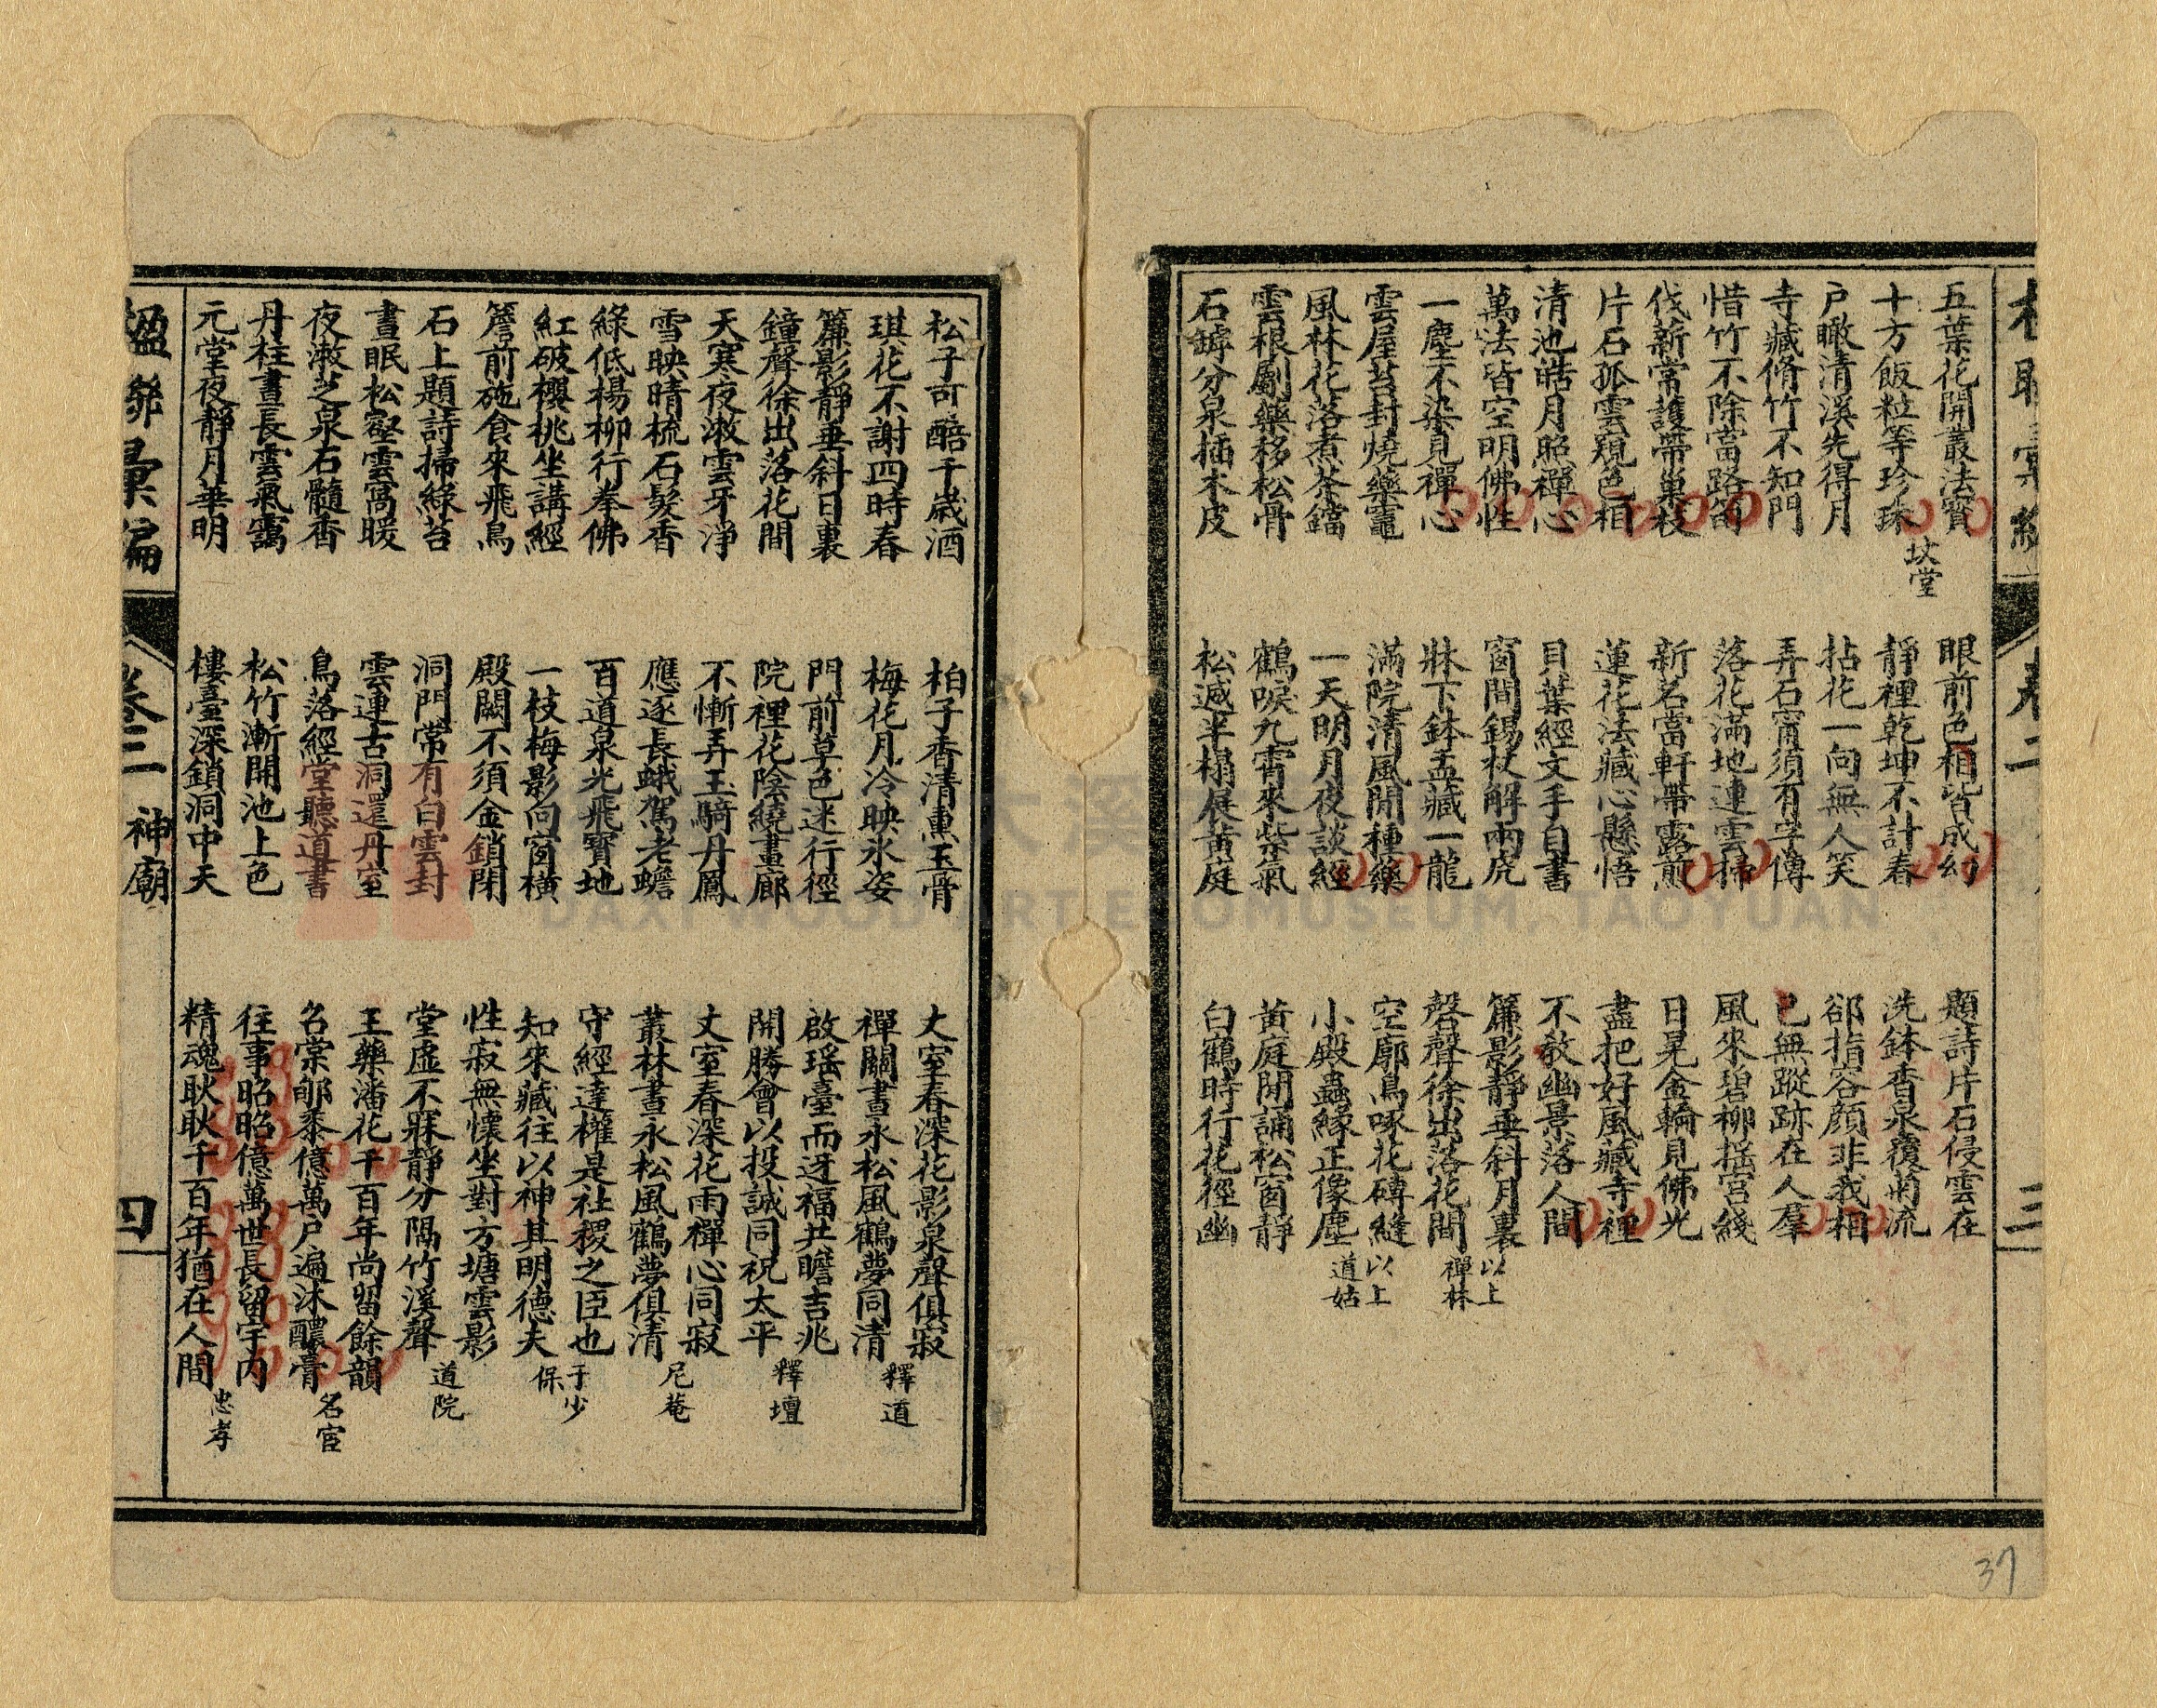 楹聯彙編
卷三
三
五葉花開叢法寶
十方飯粒等珍珠
坟堂
戶瞰清溪先得月
寺藏脩竹不知門
惜竹不除當路筍
伐薪常護帶巢枝
片石孤雲窺色相
清池皓月照禪心
萬法皆空明佛性
一塵不染見禪心
雲屋苔封燒藥竈
風林花落煮茶鐺
雲根劚藥移松骨
石罅分泉插木皮
眼前色相皆成幻
靜裡乾坤不計春
拈花一向無人笑
弄石甯須有字傳
落花滿地連雲掃
新茗當軒帶露煎
蓮花法藏心懸悟
貝葉經文手自書
窗間錫杖解兩虎
牀下鉢盂藏一龍
滿院清風閒種藥
一天明月夜談經
鶴唳九霄來紫氣
松遮半榻展黃庭
題詩片石侵雲在
洗鉢香泉覆菊流
郤指容顏非我相
已無蹤跡在人羣
風來碧柳搖宮綫
日晃金輪見佛光
盡把好風藏寺裡
不教幽景落人間
簾影靜垂斜月裏
磬聲徐出落花間
以上禪林
空廓鳥啄花磚縫
小殿蟲緣正像塵
以上道姑
黃庭閒誦松窗靜
白鶴時行花徑幽
37
松子可醅千歲酒
琪花不謝四時春
簾影靜垂斜日裏
鐘聲徐出落花間
天寒夜漱雲牙淨
雪映晴梳石髮香
綠低楊柳行奉佛
紅破櫻桃坐講經
簷前施食來飛鳥
石上題詩掃綠苔
晝眠松壑雲窩暖
夜漱芝泉石髓香
丹柱晝長雲氣靄
元堂夜靜月華明
柏子香清熏玉骨
梅花月冷映氷姿
門前草色迷行徑
院裡花陰繞畫廊
不慚弄玉騎丹鳳
應逐長蛾駕老蟾
百道泉光飛寶地
一枝梅影向窗橫
殿闕不須金鎖閉
洞門常有白雲封
雲連古洞還丹室
鳥落經堂聽道書
松竹漸開池上色
樓臺深鎖洞中天
丈室春深花影泉聲俱寂
禪關晝永松風鶴夢同清
釋道
啟瑤臺而迓福共瞻吉兆
開勝會以投誠同祝太平
釋壇
丈室春深花雨禪心同寂
叢林晝永松風鶴夢俱清
尼菴
守經達權是社稷之臣也
知來藏往以神其明德夫
于少保
性寂無懷坐對方塘雲影
堂虛不寐靜分隔竹溪聲
道院
王藥潘花千百年尚留餘韻
召棠郇黍億萬戶遍沐醲膏
名宦
往事昭昭億萬世長留宇内
精魂耿耿千百年猶在人間
忠孝
楹聯彙編
卷三
神廟
四
DAXI WOOD ART ECOMUSEUM, TAOYUAN